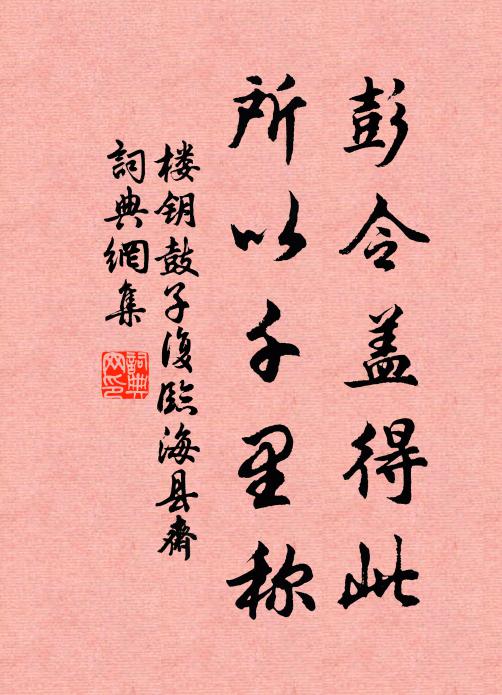 彭令盖得此
所以千里称
楼钥鼓子复臨海县齋
詞典網集
詞典網印